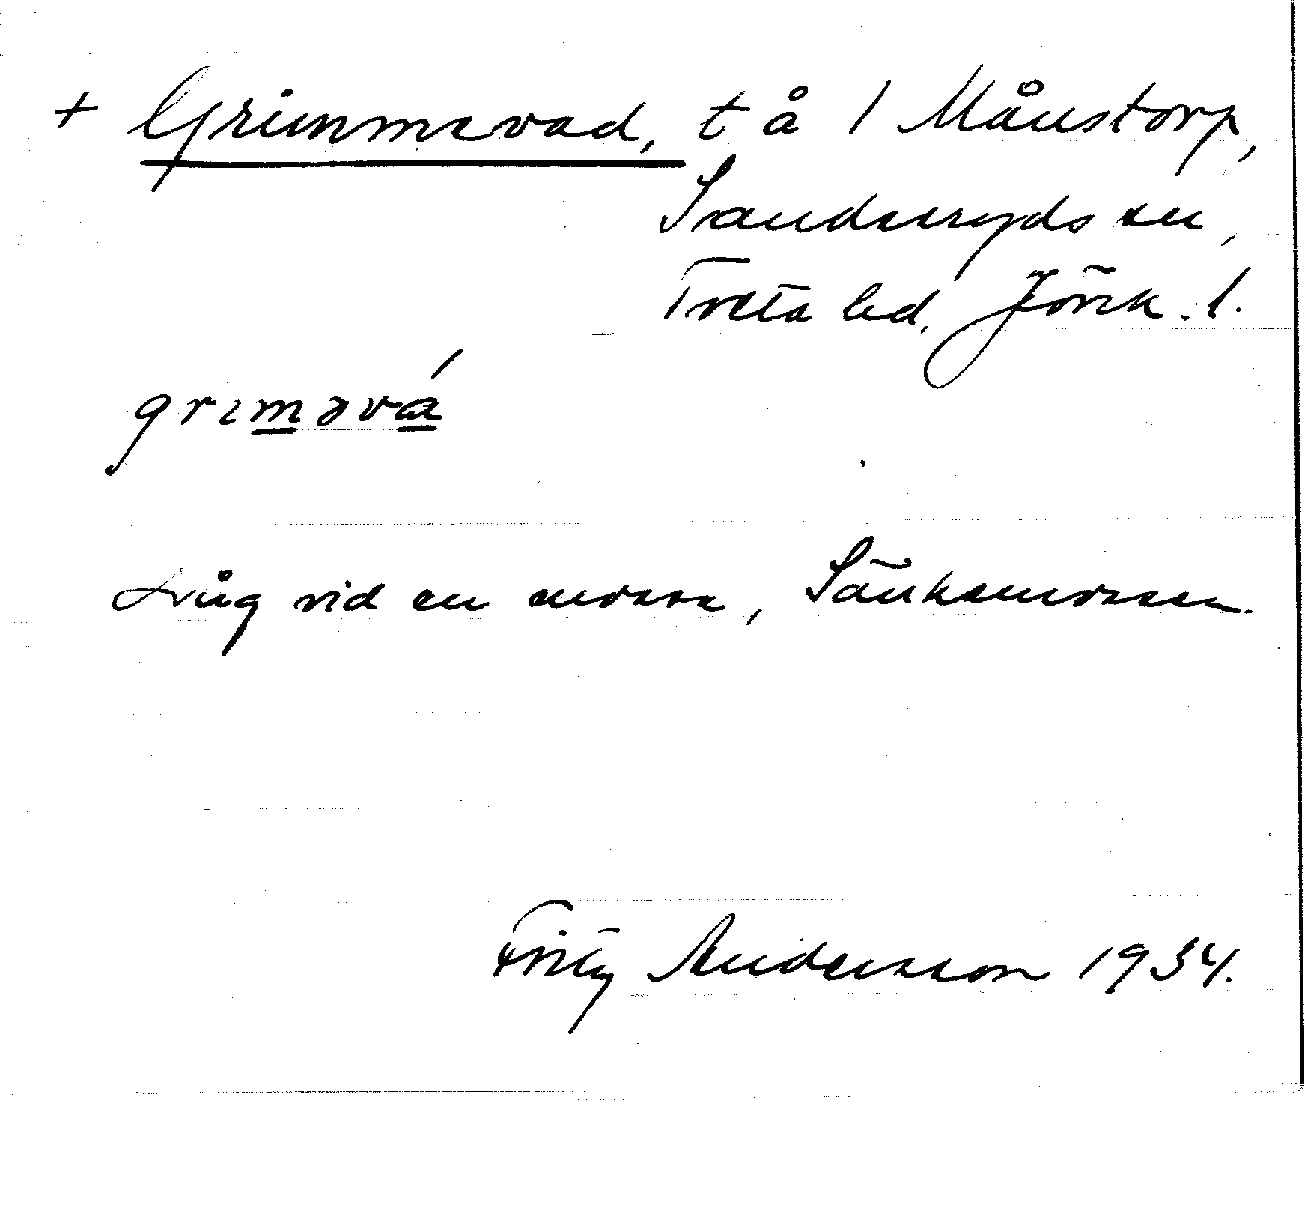 + Grimmevad, t å 1 Månstorp,
Sandseryds sn,
Tveta hd, Jönk. l.
grıməvá
Låg vid en mosse, Sänkemossen.
Fritz Andersson 1934.